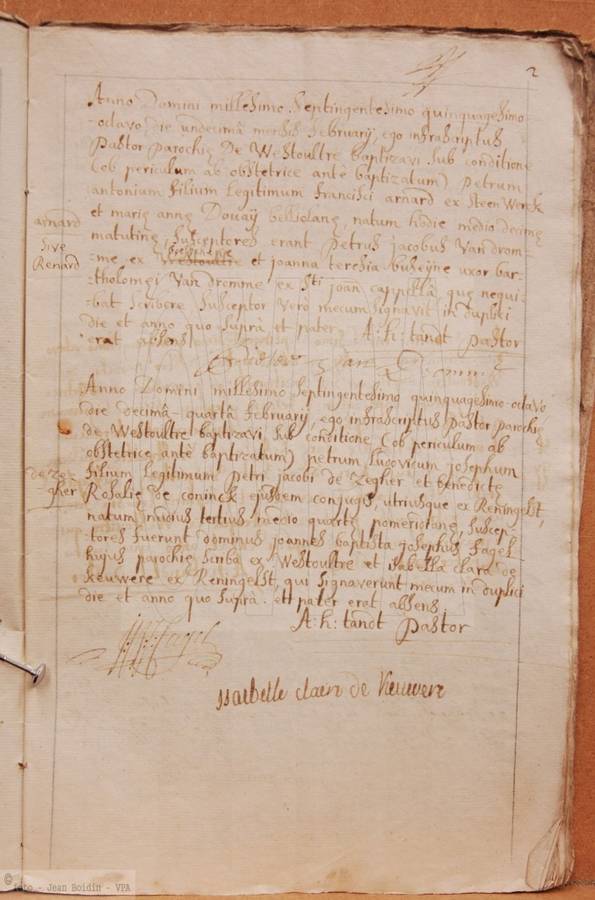 2
Anno Domini millesimo septingentesimo quinquagesimo
-octavo, die undecimâ mensis februarij, ego infrascriptus
Pastor parochię De Westoultre baptizavi sub conditione
(ob periculum ab obstetrice antè baptizatum) petrum
antonium filium legitimum francisci arnard ex Steenwerck
et marię annę Douaÿ natum hodie medio decimę
arnard
sive
Renard
matutinę, susceptores erant petrus jacobus Van drom-
-me ex Westoultre et joanna teresia buseÿne uxor bar-
-tholomęi Van dromme ex Sti joañ cappellâ, quę nequi-
-bat scribere susceptor verò mecum signavit in duplici
die et anno quo suprà et pater A: h: tandt pastor
erat absens
Anno Domini millesimo septingentesimo quinquagesimo-octavo
die decimâ-quartâ februarij, ego infrascriptus pastor parochię
de Westoultre baptizavi sub conditione (ob periculum ab
obstetrice antè baptizatum) petrum Ludovicum josephum
de ze-
gher
filium legitimum petri jacobi de Zegher et benedictę
Rosalię de coninck ejusdem conjugis, utriusque ex Reningelst,
natum nudius tertius medio quartę pomeridianę, suscep-
-tores fuerunt dominus joannes baptista josephus fagel
hujus parochię scriba ex Westoultre et isabella clara de
keuwere ex Reningelst, qui signaverunt mecum in duplici
die et anno quo suprà. et pater erat absens.
A: h: tandt pastor
issabelle claire de Keuwere
© foto - Jean Boidin - VPA